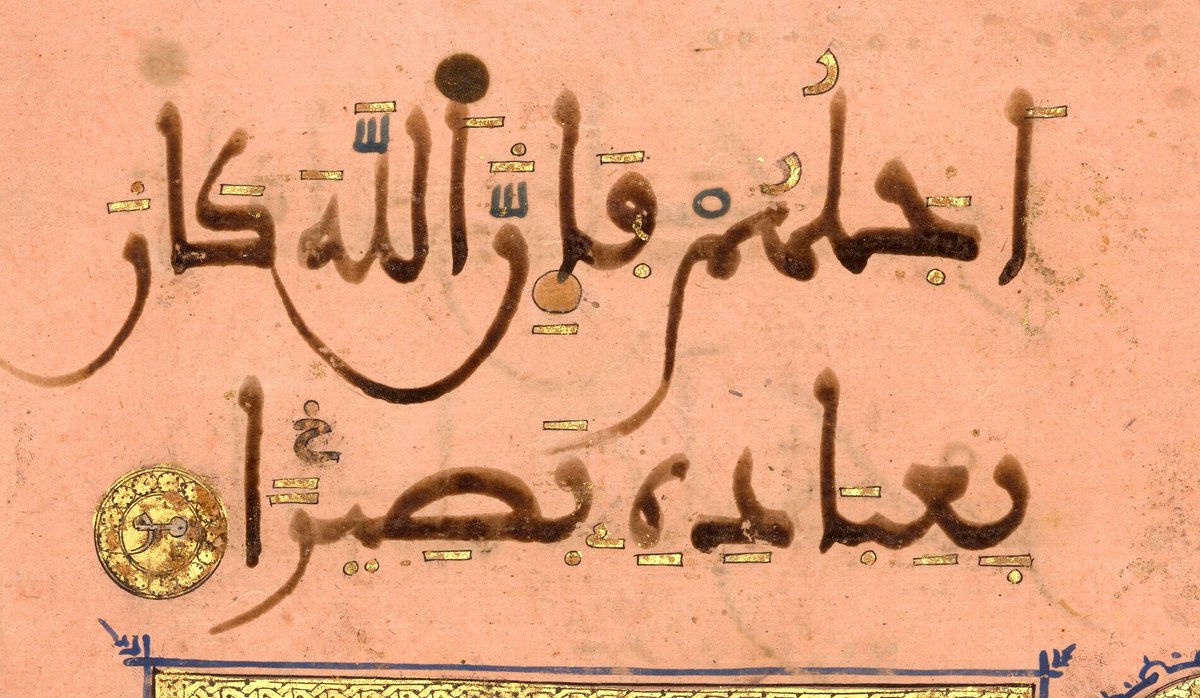 أَجَلُهُمْ فَإِنَّ اَللَّهَ كَانَ
بِعِبَادِهِ بَصِيرًا